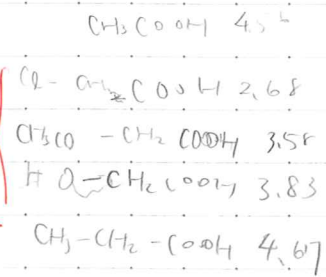 CH3COOH 4.5
Cl-CH2COOH 2.68
CH3CO -CH2 COOH 3.58
HO-CH2COOH 3.83
CH3-CH2-COOH 4.67